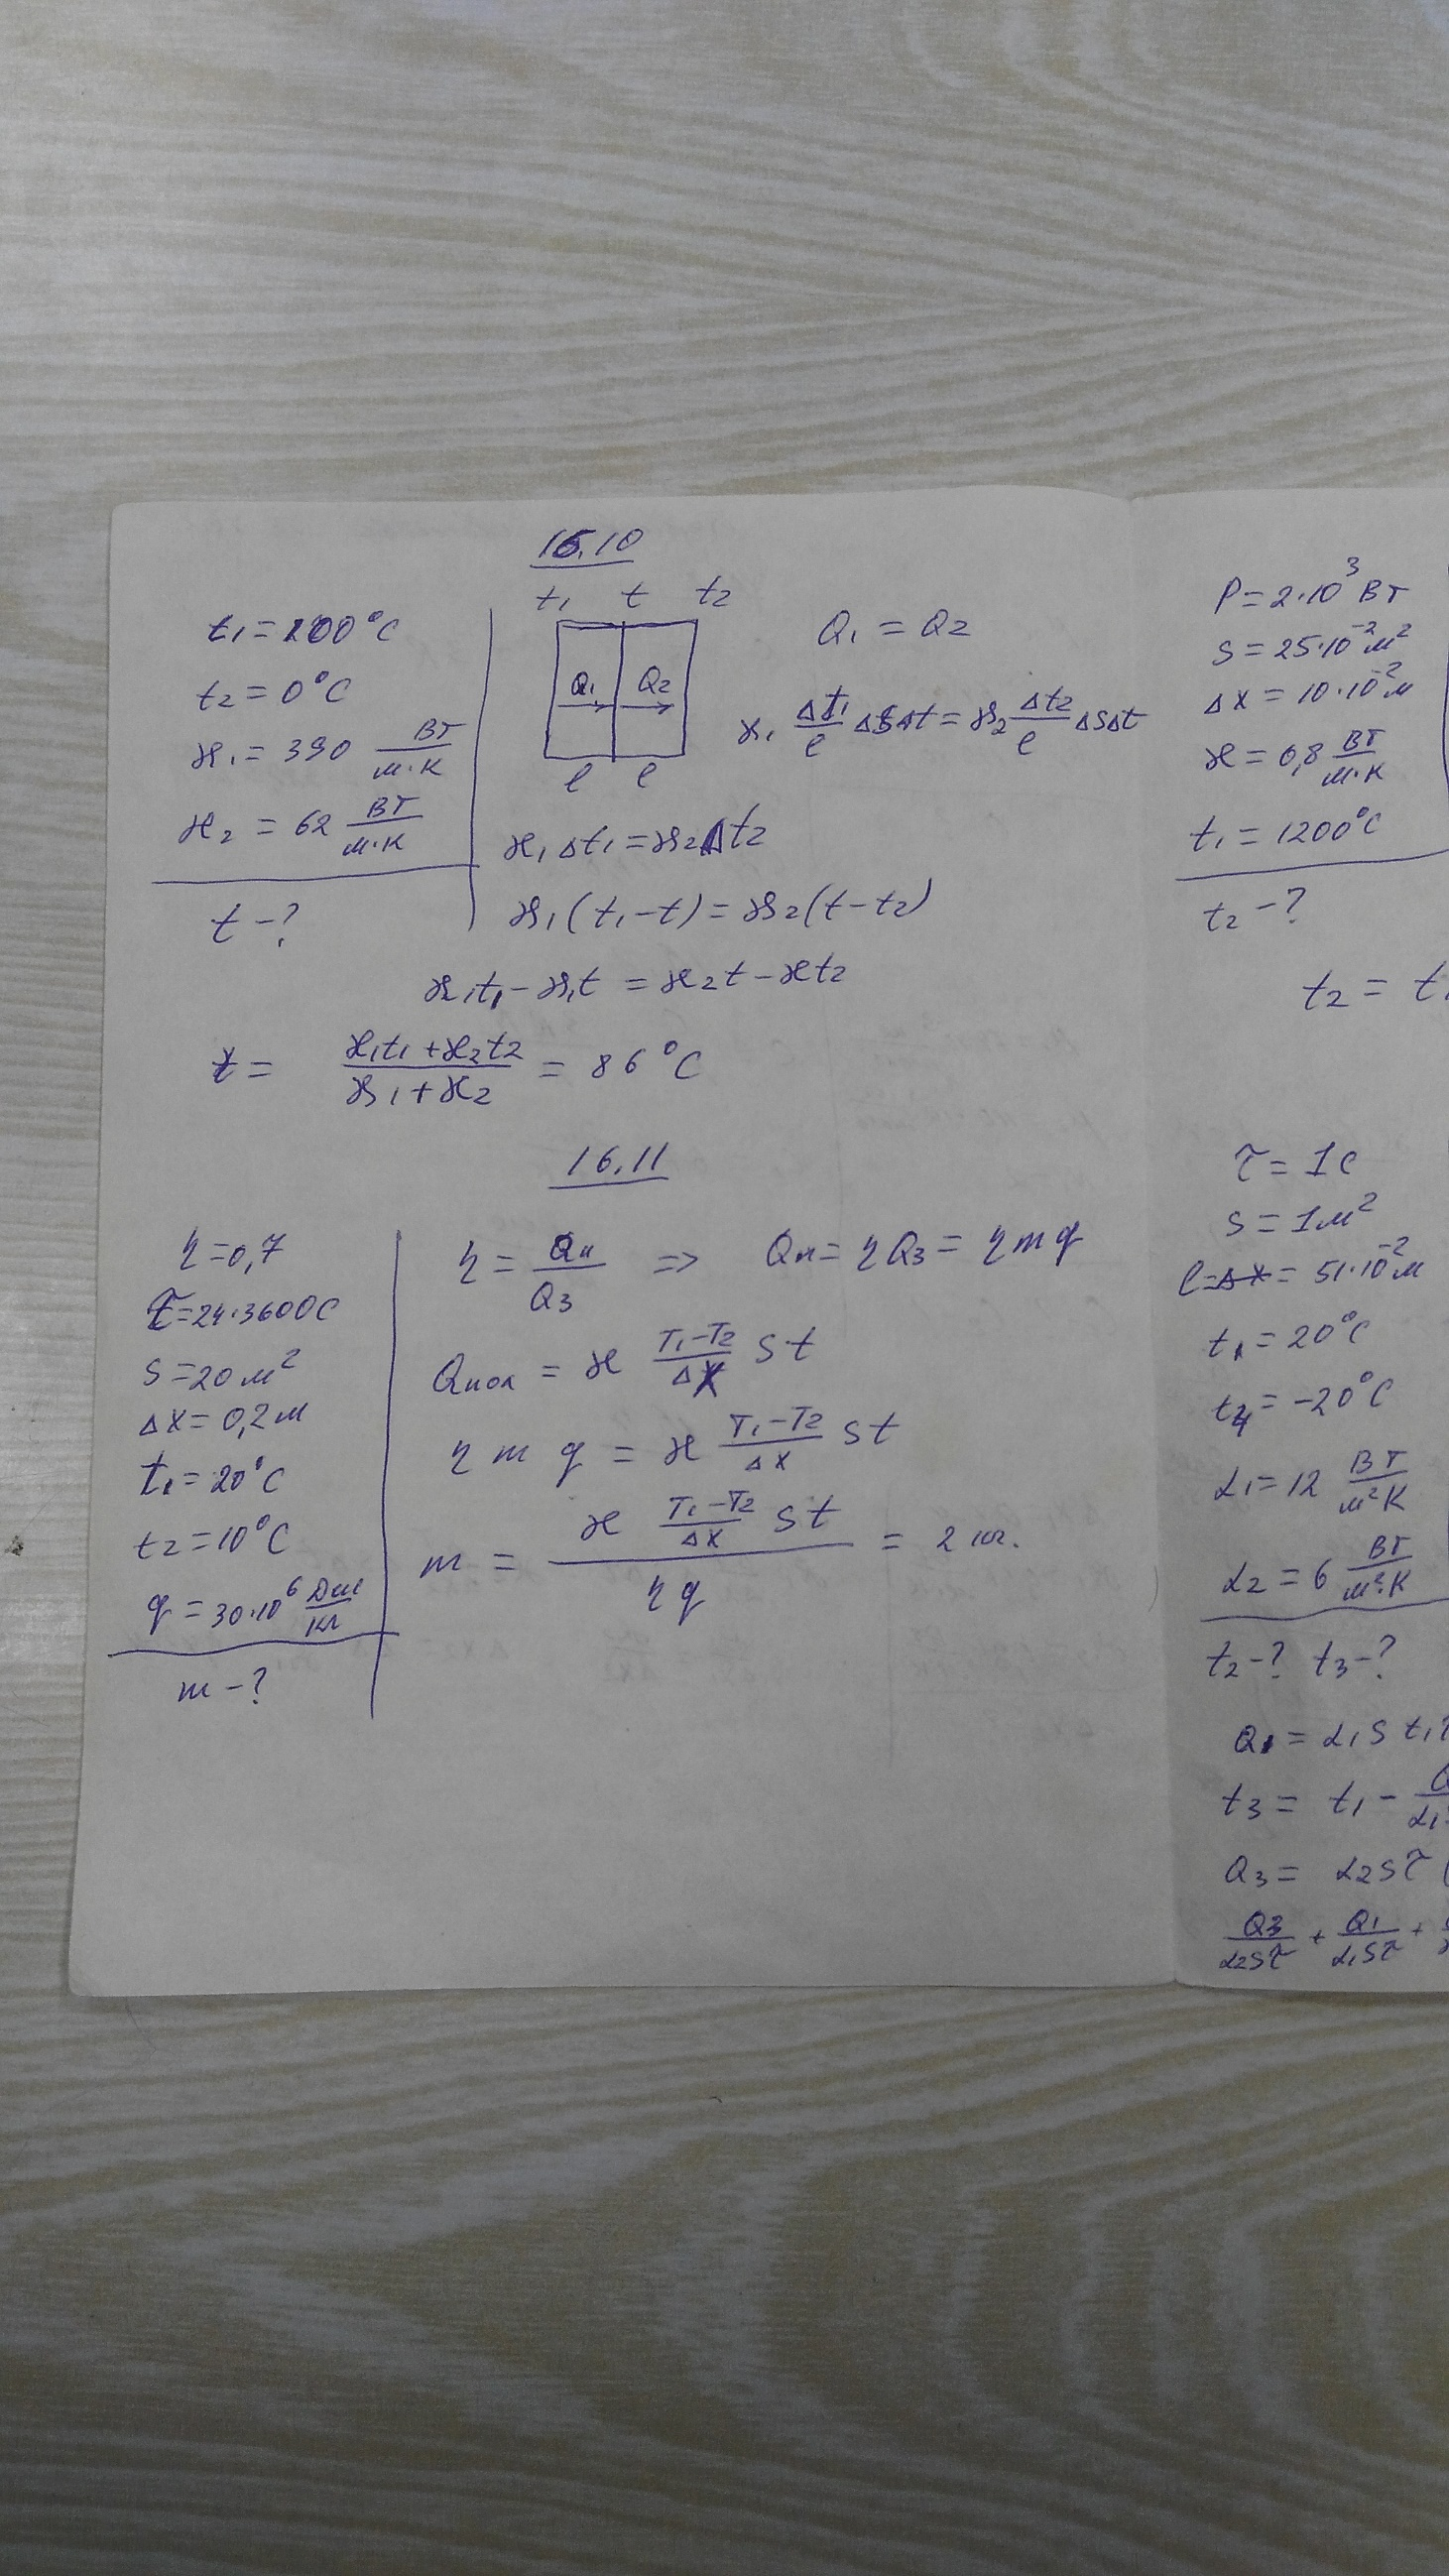 16.10
t₁ = 100°C
t₂ = 0°C
ϰ₁ = 390 Вт/м·К
ϰ₂ = 62 Вт/м·К
t – ?
t₁ t t₂
Q₁ Q₂
l l
Q₁ = Q₂
ϰ₁ Δt₁/l ΔSΔt = ϰ₂ Δt₂/l ΔSΔt
ϰ₁Δt₁ = ϰ₂Δt₂
ϰ₁(t₁ – t) = ϰ₂(t – t₂)
ϰ₁t₁ – ϰ₁t = ϰ₂t – ϰt₂
t = (ϰ₁t₁ + ϰ₂t₂)/(ϰ₁ + ϰ₂) = 86°C
16.11
η = 0,7
τ = 24·3600 С
S = 20 м²
Δx = 0,2 м
t₁ = 20°C
t₂ = 10°C
q = 30·10⁶ Дж/кг
m – ?
η = Qп/Qз => Qп = ηQз = ηmq
Qпол = ϰ (T₁–T₂)/Δx St
η m q = ϰ (T₁–T₂)/Δx St
m = (ϰ (T₁–T₂)/Δx St)/(ηq) = 2 кг.
P = 2·10³ Вт
S = 25·10⁻² м²
Δx = 10·10⁻² м
ϰ = 0,8 Вт/м·К
t₁ = 1200°C
t₂ – ?
t₂ = t
τ = 1с
S = 1м²
l = 51·10⁻² м
t₁ = 20°C
t₄ = –20°C
α₁ = 12 Вт/м²К
α₂ = 6 Вт/м²·К
t₂ – ? t₃ – ?
Q₁ = α₁S t₁
t₃ = t₁ –
Q₃ = α₂Sτ (
Q₃/α₂Sτ + Q₁/α₁Sτ +